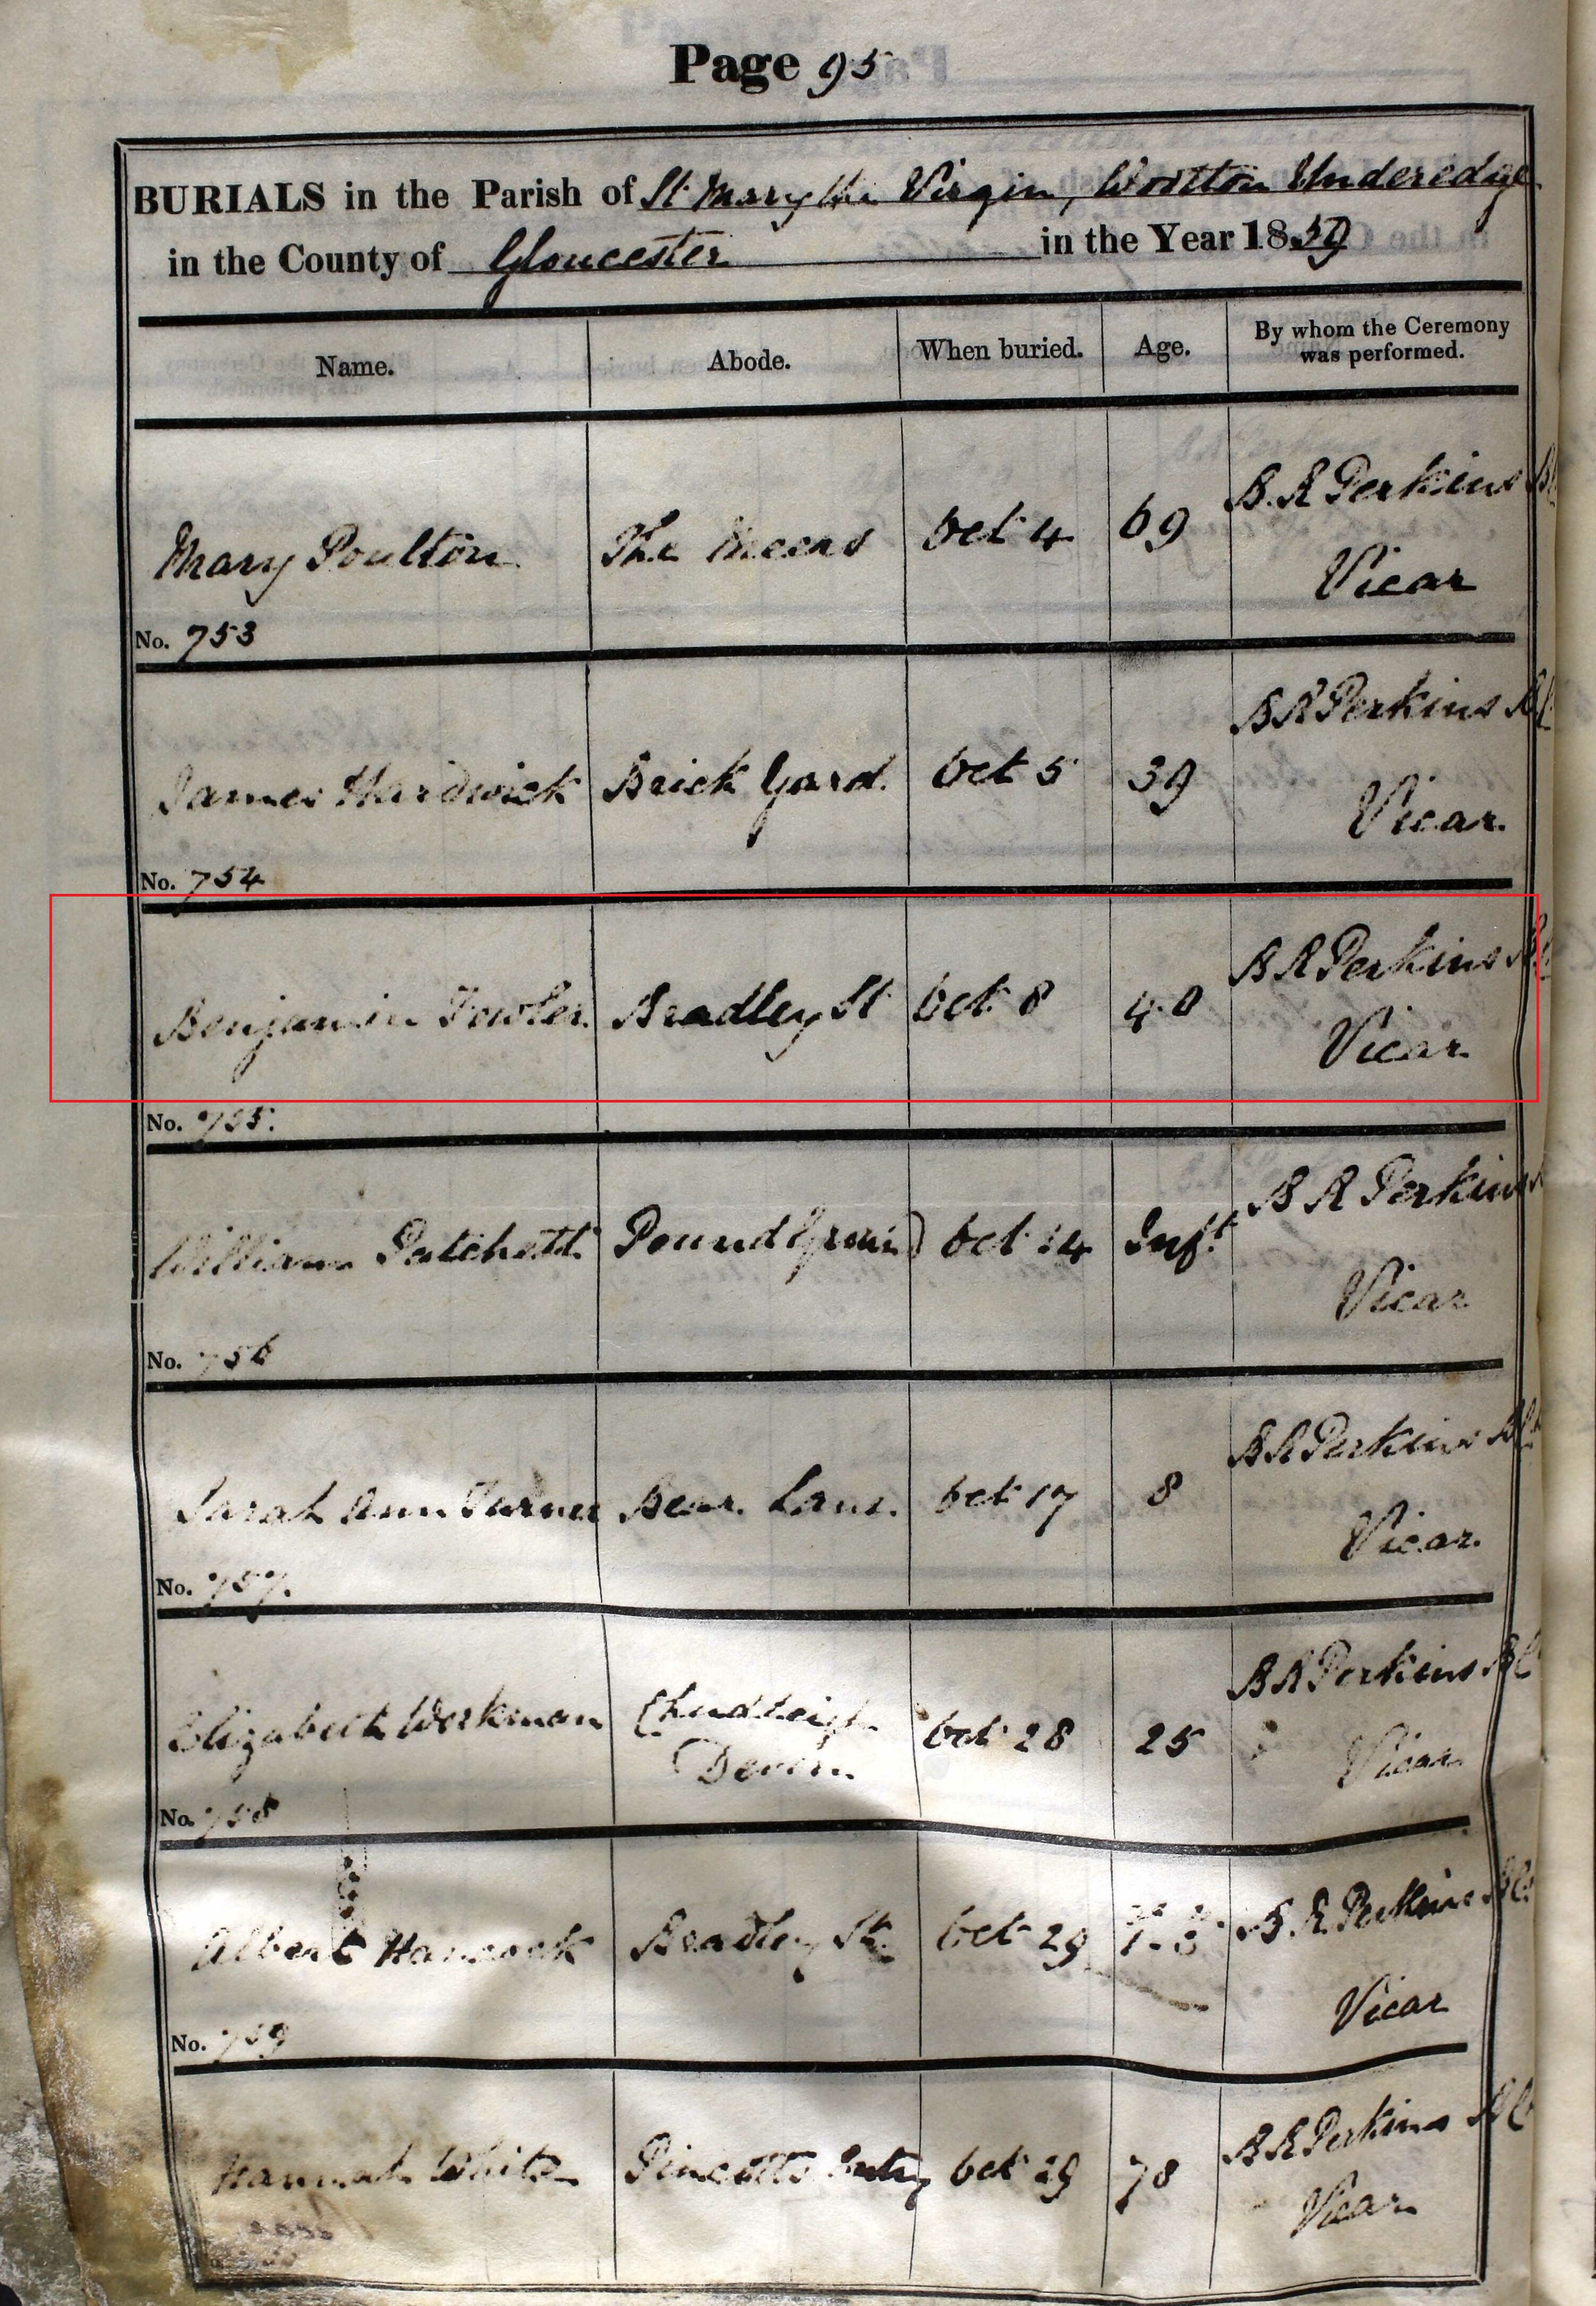 Page 95
BURIALS in the Parish of St Mary the Virgin, Wootton Underedge
in the County of Gloucester in the Year 1859
Name. Abode. When buried. Age. By whom the Ceremony was performed.
Mary Poulton The Oct 4 69 B. R Perkins
Vicar
No. 753
James Hardwick Brick Yard. Oct 5 39 B R Perkins
Vicar.
No. 754
Benjamin Fowler. Bradley St Oct 8 40 B R Perkins
Vicar
No. 755.
William Patchett Pound Oct 14 Inft. B R Perkins
Vicar
No. 756
Sarah Ann Turner Bear Lane. Oct 17 8 B R Perkins
Vicar.
No. 757.
Elizabeth Workman Chudleigh Oct 28 25 B R Perkins
Devon. Vicar
No. 758
Albert Hancock Bradley St. Oct 29 B. R. Perkins
Vicar
No. 759
Hannah White Pincotts Entry Oct 29 78 B R Perkins
Vicar